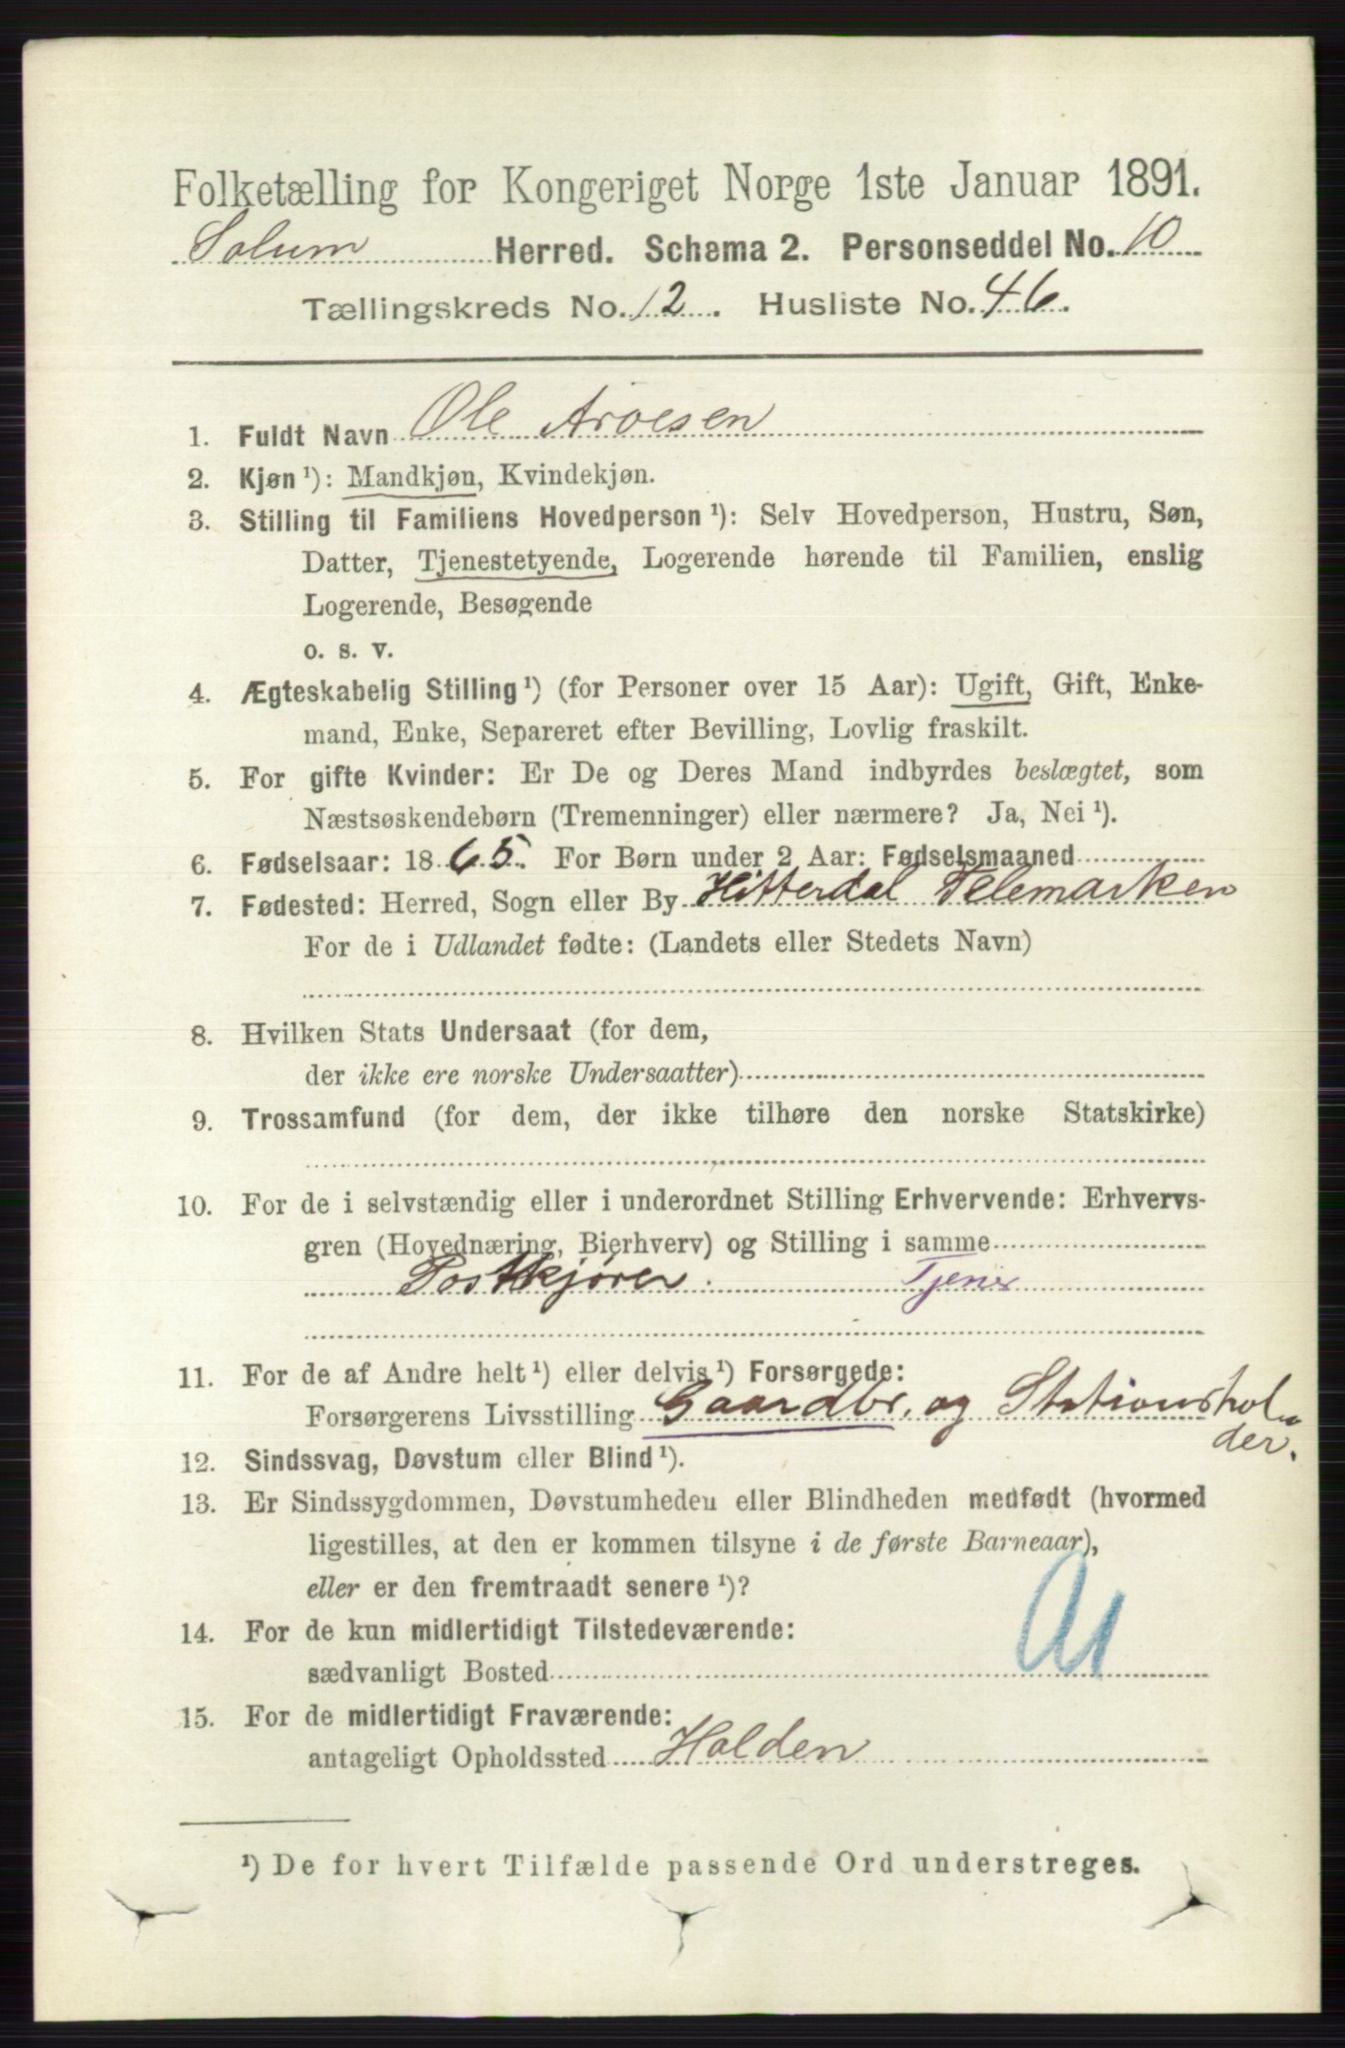 Folketælling for Kongeriget Norge 1ste Januar 1891.
Solum Herred. Schema 2. Personseddel No. 10
Tællingskreds No. 12. Husliste No. 46.
1. Fuldt Navn Ole Aroesen
2. Kjøn ¹): Mandkjøn, Kvindekjøn.
3. Stilling til Familiens Hovedperson ¹): Selv Hovedperson, Hustru, Søn,
Datter, Tjenestetyende, Logerende hørende til Familien, enslig
Logerende, Besøgende
o. s. v.
4. Ægteskabelig Stilling ¹) (for Personer over 15 Aar): Ugift, Gift, Enke-
mand, Enke, Separeret efter Bevilling, Lovlig fraskilt.
5. For gifte Kvinder: Er De og Deres Mand indbyrdes beslægtet, som
Næstsøskendebørn (Tremenninger) eller nærmere? Ja, Nei ¹).
6. Fødselsaar: 1865. For Børn under 2 Aar: Fødselsmaaned
7. Fødested: Herred, Sogn eller By Hitterdal Telemarken
For de i Udlandet fødte: (Landets eller Stedets Navn)
8. Hvilken Stats Undersaat (for dem,
der ikke ere norske Undersaatter)
9. Trossamfund (for dem, der ikke tilhøre den norske Statskirke)
10. For de i selvstændig eller i underordnet Stilling Erhvervende: Erhvervs-
gren (Hovednæring, Bierhverv) og Stilling i samme
Postkjører. Tjener
11. For de af Andre helt ¹) eller delvis ¹) Forsørgede:
Forsørgerens Livsstilling Gaardbr. og Stationshol-
der.
12. Sindssvag, Døvstum eller Blind ¹).
13. Er Sindssygdommen, Døvstumheden eller Blindheden medfødt (hvormed
ligestilles, at den er kommen tilsyne i de første Barneaar),
eller er den fremtraadt senere ¹)?
14. For de kun midlertidigt Tilstedeværende:
sædvanligt Bosted
15. For de midlertidigt Fraværende:
antageligt Opholdssted Holden
¹) De for hvert Tilfælde passende Ord understreges.